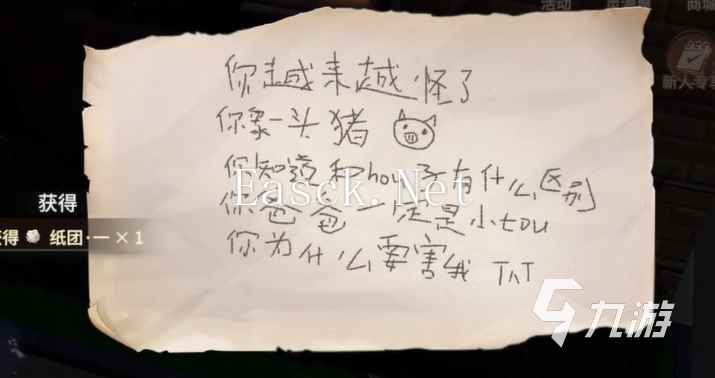 活动
商城
新人专享
你越来越怪了
你像一头猪
你知道和hou子有什么区别
Easck.Net
你爸爸一定是小tou
你为什么要害我 TAT
获得
获得 纸团·一×1
九游